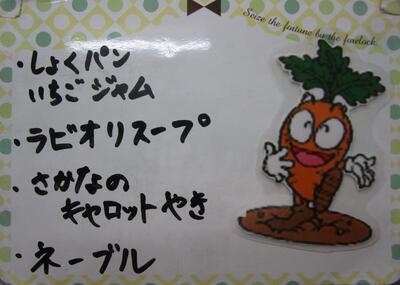 Seize the fortune by the forelock.
・しょくパン
いちごジャム
・ラビオリスープ
・さかなの
キャロットやき
・ネーブル